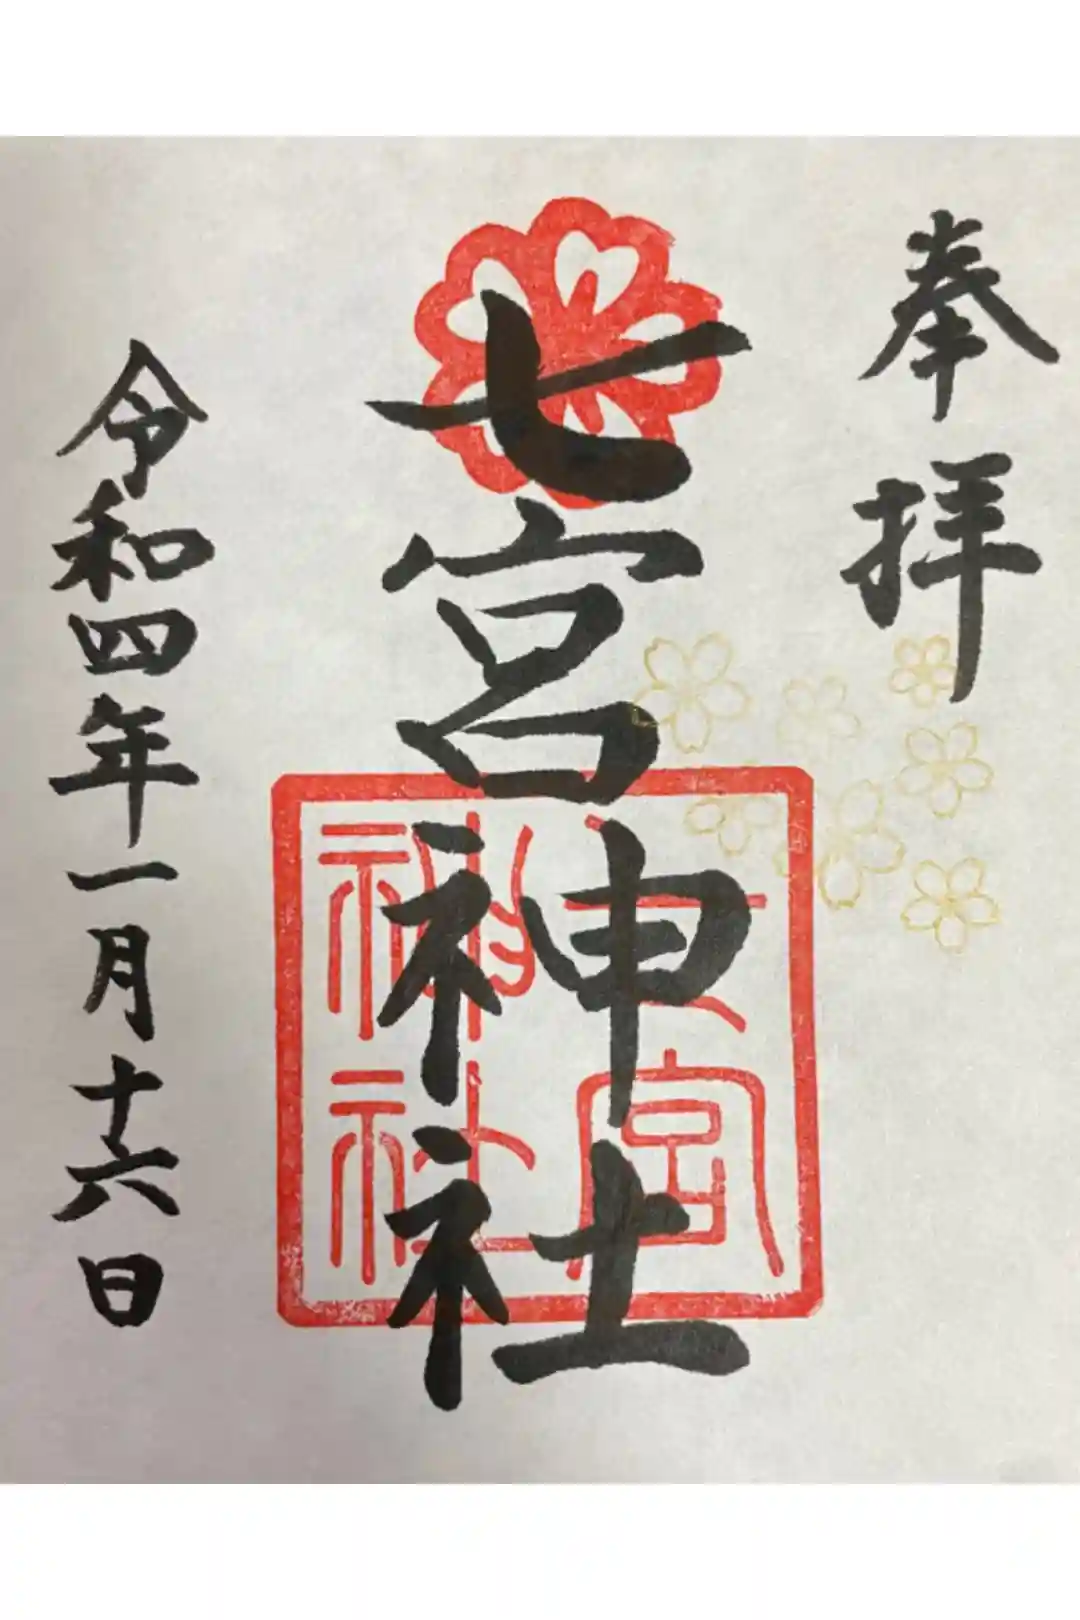 奉拝
七宮神社
七宮神社
令和四年一月十六日